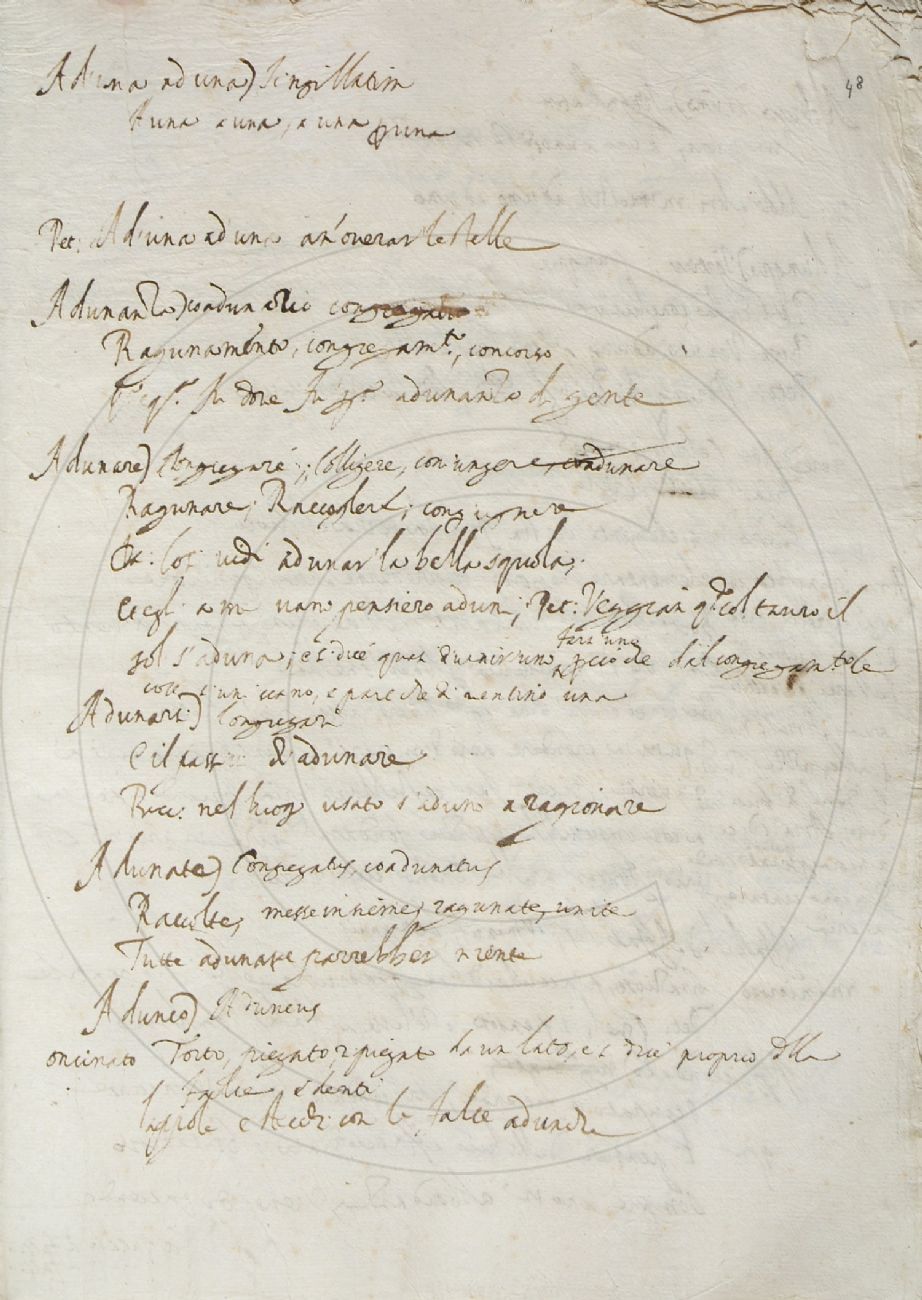 48
Ad una ad una) Singillatim
A una a una, a una per una
Pet: Ad una ad una annoverar le stelle
Adunanza) coadunatio congregatio
Ragunamento, congregamto, concorso
fu dove adunanza di gente
Adunare) Congregare, Colligere, coniungere, coadunare
Ragunare, Raccogliere, congiugnere
Cosi vidi adunar la bella squola
a me vano pensiero aduni, Pet: Veggian qdo col tauro il
sol s'aduna; e si dice quasi unire in uno
farsi uno
dal congregamto le
cose si uniscano, e pare che di una
Adunarsi) Congregari
E il passi: d'adunare
Bocc: nel luog usato s'aduno a ragionare
Adunate) Congregatus, coadunatus
Raccolte, messe insieme, ragunate, unite
Tutte adunate parrebber niente
Adunco) Aduncus
oncinato Torto, piegato, ripiegato da un lato, e si dice proprio della
falce, e denti
con le falce adunche